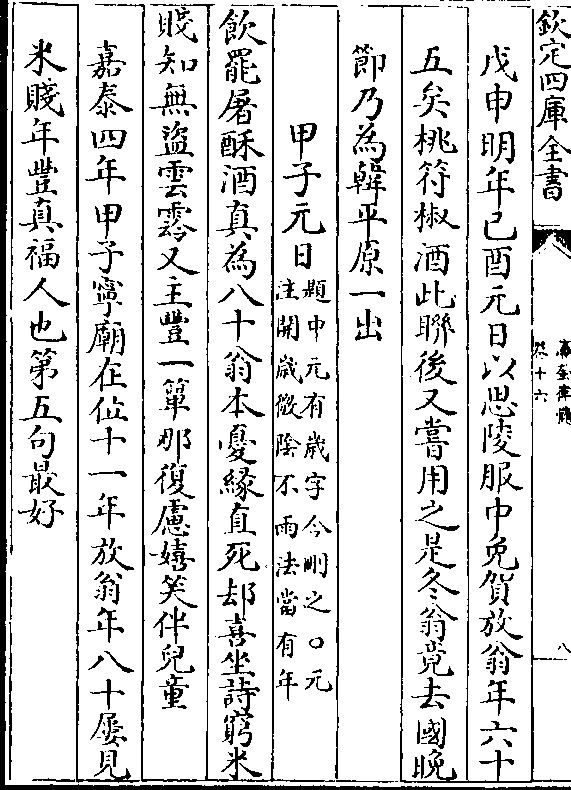 欽定四庫全書
瀛奎律髓
卷十六
八
戊申明年己酉元日以思陵服中免賀放翁年六十
五矣桃符椒酒此聯後又嘗用之是冬翁竟去國晚
節乃為韓平原一出
甲子元日題中元有歲字今刪之○元
注開歲微陰不雨法當有年
飲罷屠酥酒真為八十翁本憂緣直死却喜坐詩窮米
賤知無盜雲露又主豐一簞那復慮嬉笑伴兒童
嘉泰四年甲子寧廟在位十一年放翁年八十屢見
米賤年豐真福人也第五句最好